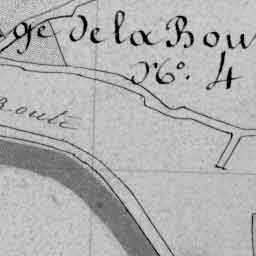 ge de la Bou
D^on 6^e. 4
Route